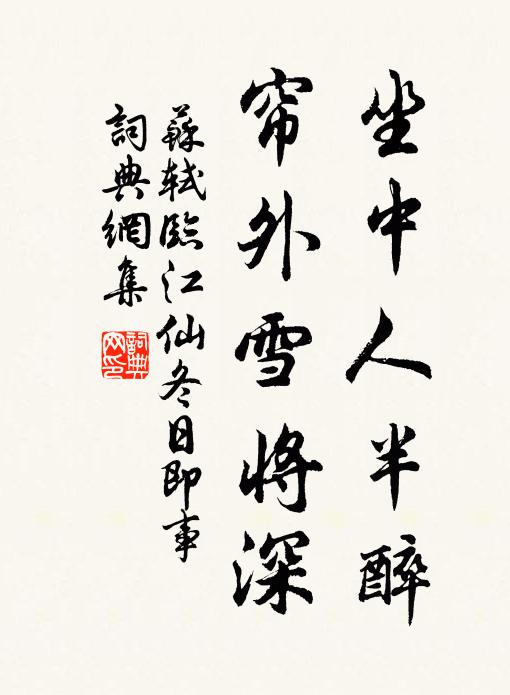 坐中人半醉
帘外雪将深
蘇軾臨江仙冬日即事
詞典網集
詞典
网印